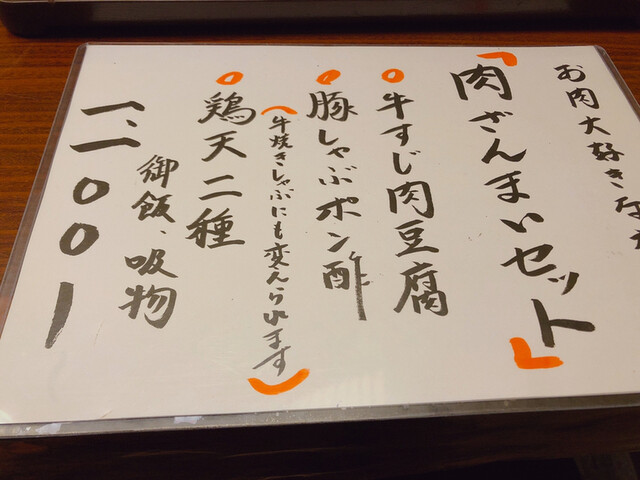 お肉大好きな
「肉ざんまいセット」
○牛すじ肉豆腐
○豚しゃぶポン酢
(牛焼きしゃぶにも変えられます)
○鶏天二種
御飯、吸物
一、二〇〇ー